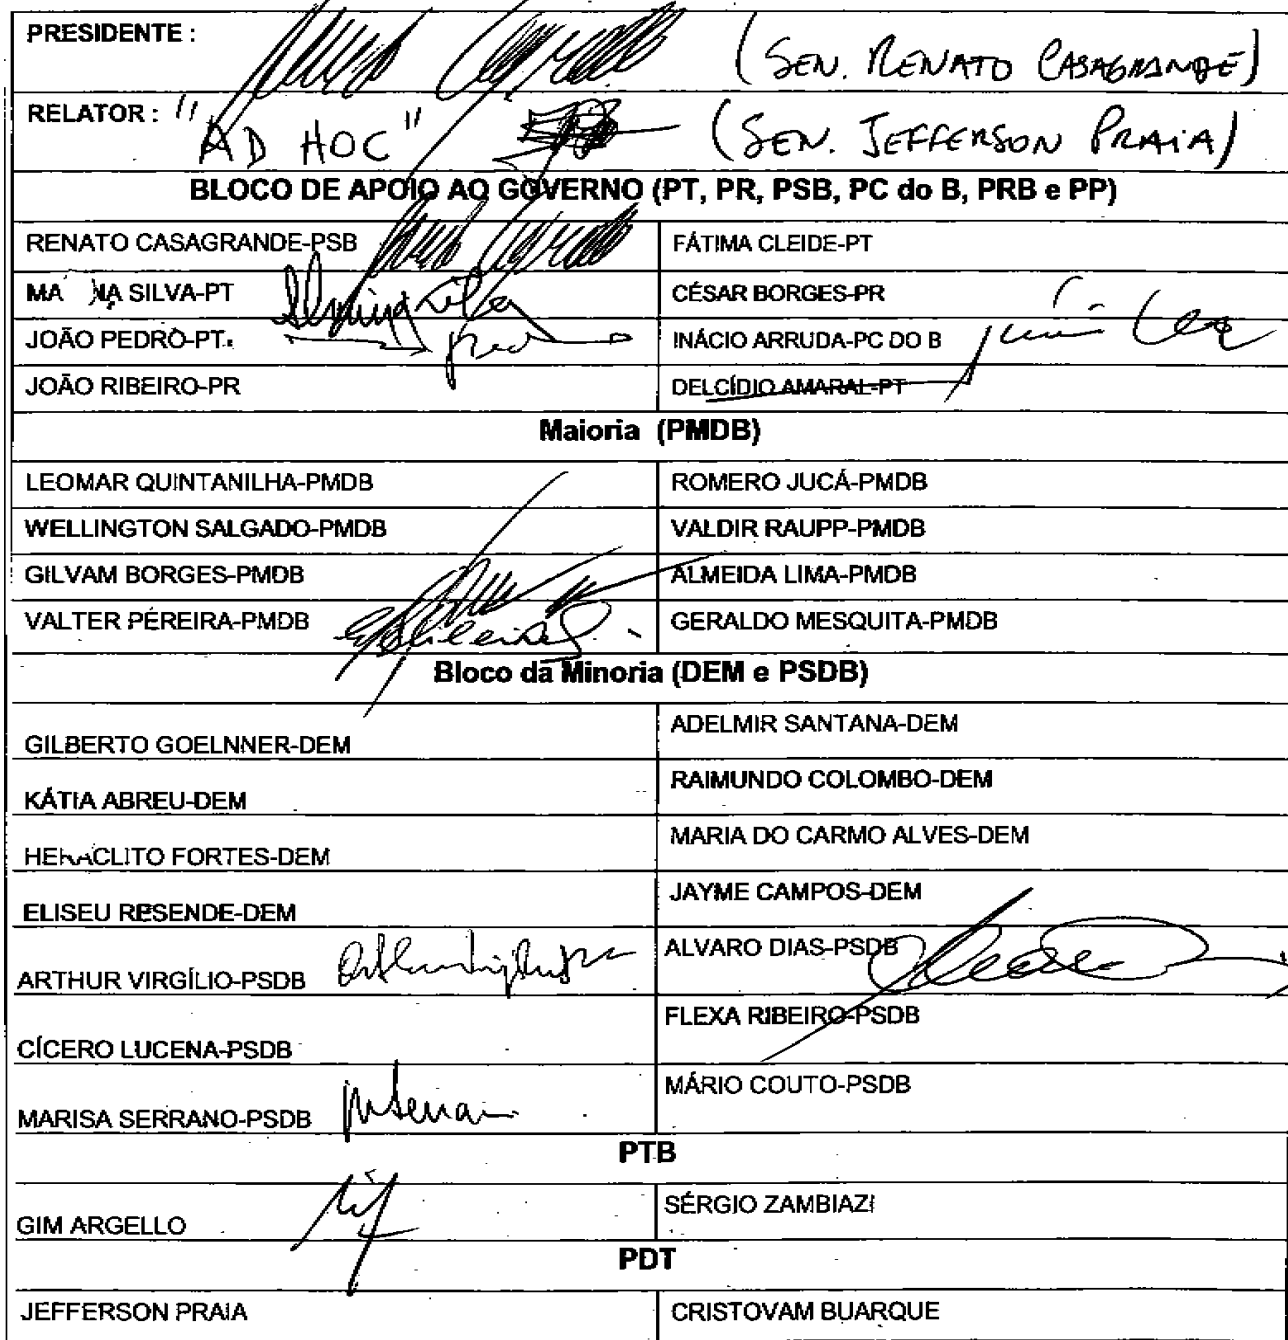 PRESIDENTE : (SEN. RENATO CASAGRANDE)
RELATOR : "AD HOC" (SEN. JEFFERSON PRAIA)
BLOCO DE APOIO AO GOVERNO (PT, PR, PSB, PC do B, PRB e PP)
RENATO CASAGRANDE-PSB FÁTIMA CLEIDE-PT
SILVA-PT CÉSAR BORGES-PR
JOÃO PEDRO-PT INÁCIO ARRUDA-PC DO B
JOÃO RIBEIRO-PR DELCÍDIO AMARAL-PT
Maioria (PMDB)
LEOMAR QUINTANILHA-PMDB ROMERO JUCÁ-PMDB
WELLINGTON SALGADO-PMDB VALDIR RAUPP-PMDB
GILVAM BORGES-PMDB ALMEIDA LIMA-PMDB
VALTER PEREIRA-PMDB GERALDO MESQUITA-PMDB
Bloco da Minoria (DEM e PSDB)
GILBERTO GOELNNER-DEM ADELMIR SANTANA-DEM
KÁTIA ABREU-DEM RAIMUNDO COLOMBO-DEM
HERÁCLITO FORTES-DEM MARIA DO CARMO ALVES-DEM
ELISEU RESENDE-DEM JAYME CAMPOS-DEM
ARTHUR VIRGÍLIO-PSDB ALVARO DIAS-PSDB
CÍCERO LUCENA-PSDB FLEXA RIBEIRO-PSDB
MARISA SERRANO-PSDB MÁRIO COUTO-PSDB
PTB
GIM ARGELLO SÉRGIO ZAMBIAZI
PDT
JEFFERSON PRAIA CRISTOVAM BUARQUE